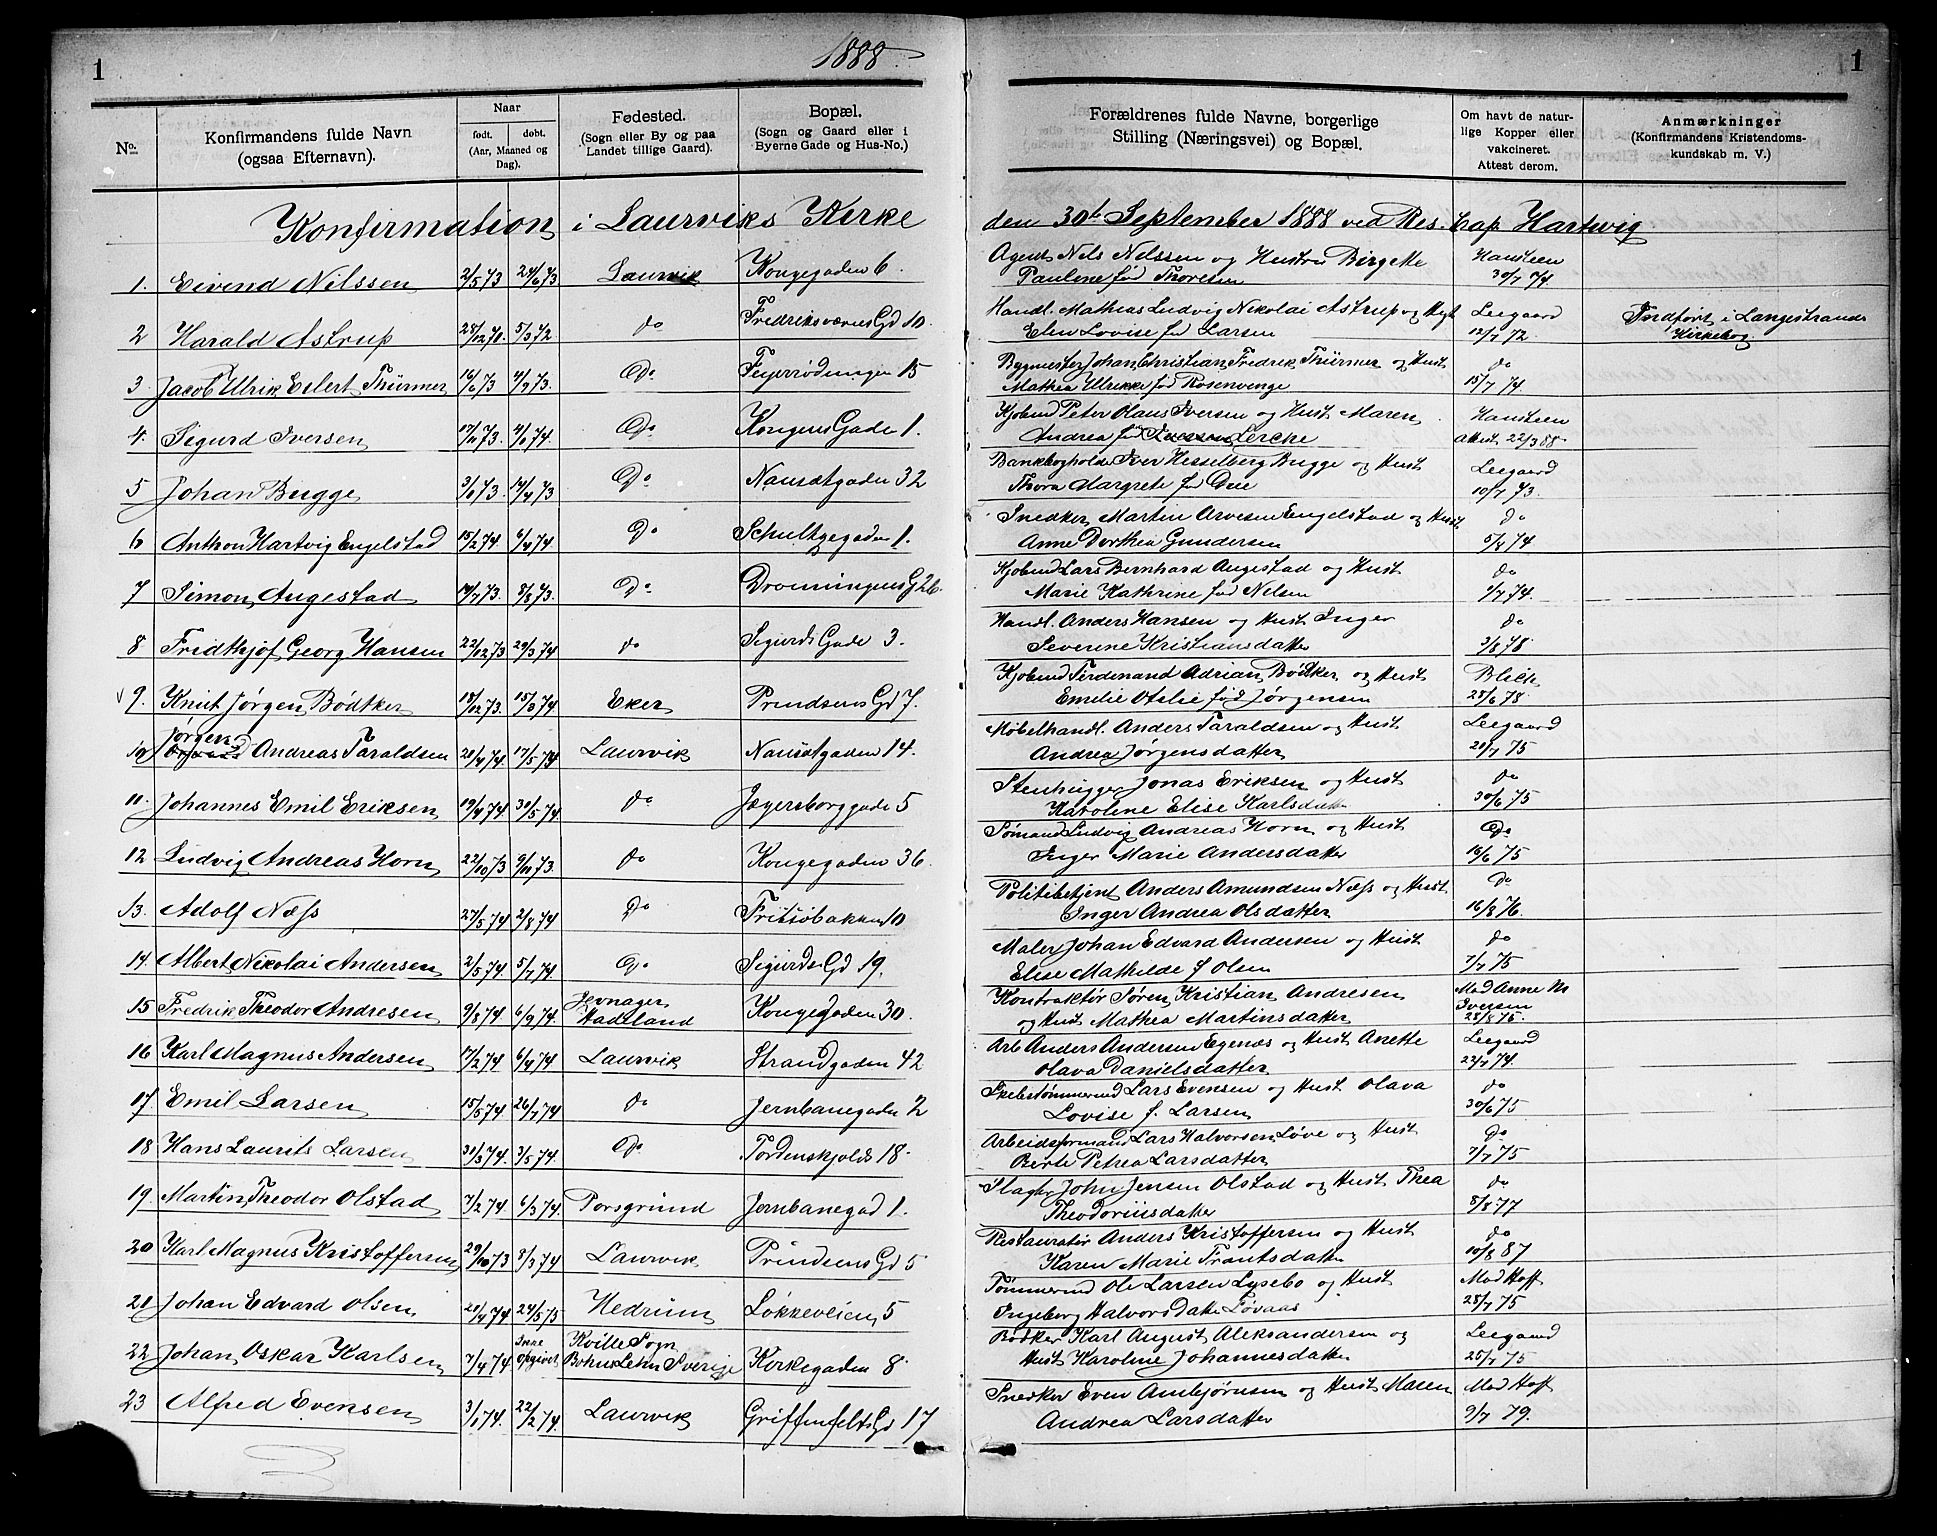 1
1888.
1
No.
Konfirmandens fulde Navn
(ogsaa Efternavn).
Naar
født. døbt.
(Aar, Maaned og
Dag).
Fødested.
(Sogn eller By og paa
Landet tillige Gaard).
Bopæl.
(Sogn og Gaard eller i
Byerne Gade og Hus-No.)
Forældrenes fulde Navne, borgerlige
Stilling (Næringsvei) og Bopæl.
Om havt de natur-
lige Kopper eller
vakcineret.
Attest derom.
Anmærkninger
(Konfirmandens Kristendoms-
kundskab m. V.)
Konfirmation i Laurviks Kirke den 30t September 1888 ved Res. Cap. Hartvig
1. Eivind Nilssen 2/5 73 24/6 73 Laurvik Kongegaden 6. Agent Nils Nilssen og Hustru Birgitte Hansteen
Pauline fød Thoresen 30/7 74.
2 Harald Astrup 28/12 71. 5/3 72 do Fredriksværns Gd 10. Handl. Mathias Ludvig Nikolai Astrup og Hust Leegaard Indført i Langestrands
Elin Lovise fød Larsen 12/7 72. Kirkebog.
3. Jacob Ulrik Eilert Thürmer 16/6 73 4/7 73. Do Feyerrødningen 15 Bygmester Johan Christian Fredrik Thürmer og Hust do
Mathea Ulrikke fød Rosenvenge 15/7 74.
4. Sigurd Iversen 17/11 73. 4/1 74. Do Kongens Gade 1. Kjøbmd Peter Olaus Iversen og Hust. Maren Hansteen
Andrea fød Lerche Attest 22/3 88
5 Johan Bugge 3/1 73. 14/4 73 Do Nansetgaden 32 Bankbogholder Iver Hesselberg Bugge og Hust Leegaard
Thora Margrete fød Deie 10/7 73.
6 Anthon Hartvig Engelstad 15/2 74. 6/4 74 Do Schultzegaden 1. Snedker Martin Arvesen Engelstad og Hust do
Anne Dorthea Gundersen 5/8 74
7 Simon Augestad 14/7 73. 8/8 73. Do Dronningens G 26. Kjøbmd Lars Bernhard Augestad og Hust do
Marie Kathrine fød Nilsen 1/7 74.
8 Fridthjof Georg Hansen 22/12 73 29/3 74 do Sigurds Gade 3. Handl. Anders Hansen og Hust Inger do
Severine Kristiansdatter 3/8 78
9. Knut Jørgen Bødtker 18/12 73. 15/3 74 Eker Prindsens Gd 7. Kjøbmd Ferdinand Adrian Bødtker og Hust Blich
Emilie Otilie fød Jørgensen 28/6 78.
10 Jørgen Andreas Taraldsen 20/4 74 17/5 74 Laurvik Nansetgaden 14. Møbelhandl. Anders Taraldsen og Hust Leegaard
Andrea Jørgensdatter 20/7 75
11. Johannes Emil Eriksen 19/4 74. 30/5 74 do Jægersborggade 5 Stenhugger Jonas Eriksen og Hust do
Karoline Elise Karlsdatter 30/6 75
12 Ludvig Andreas Horn 22/10 73 9/11 73. do Kongegaden 36. Sømand Ludvig Andreas Horn og Hust Do
Inger Marie Andersdatter 16/6 75
13. Adolf Næss 27/5 74 2/8 74 Do Fritsøbakken 10 Politibetjent Anders Amundsen Næss og Hust Do
Inger Andrea Olsdatter 16/8 76.
14. Albert Nikolai Andersen 2/5 74 5/7 74. Do Sigurds Gd 19. Maler Johan Edvard Andersen og Hust do
Elise Mathilde f Olsen 7/7 75
15 Fredrik Theodor Andresen 9/8 74 6/9 74. Jevnager Hadeland Kongegaden 30. Kontraktør Søren Kristian Andresen Mad Anne M Iversen
og Hust Mathea Martinsdatter 28/8 75.
16 Karl Magnus Andersen 17/2 74 6/4 74 Laurvik Strandgaden 42 Arb Anders Andersen Egenæs og Hust Anette Leegaard
Olava Danielsdatter 22/7 74.
17 Emil Larsen 15/5 74 26/7 74 do Jernbanegaden 2 Skibstømmermd Lars Evensen og Hust Olava do
Lovise f. Larsen 30/6 75
18 Hans Laurits Larsen 31/3 74. 3/5 74. Do Tordenskjolds 18. Arbeidsformand Lars Halvorsen Løve og Hust Do
Berte Petrea Larsdatter 7/7 75
19. Martin Theodor Olstad 7/2 74. 6/3 74. Porsgrund Jernbanegad 1. Slagter John Jensen Olstad og Hust Thea do
Theodoriusdatter 8/8 77
20 Karl Magnus Kristoffersen 29/10 73 8/3 74 Laurvik Prindsens Gd 5 Restauratør Anders Kristoffersen og Hust do
Karen Marie Frantsdatter 10/8 87
21 Johan Edvard Olsen 20/4 74 24/5 75 Hedrum Løkkeveien 5 Tømmermd Ole Larsen Lysebo og Hust Mad Hoff
Ingeborg Halvorsdatter Løvaas 28/7 75
22 Johan Oskar Karlsen 7/4 74 Ikke opgivet Kville Sogn Bohus Lehn Sverige Kirkegaden 8. Bødker Karl August Aleksandersen og Leegaard
Hust Karoline Johannesdatter 25/7 75
23 Alfred Evensen 3/1 74. 22/2 74. Laurvik Griffenfelts Gd 17 Snedker Even Ambjørnsen og Hust Maren Mad Hoff
Andrea Larsdatter 9/7 79.